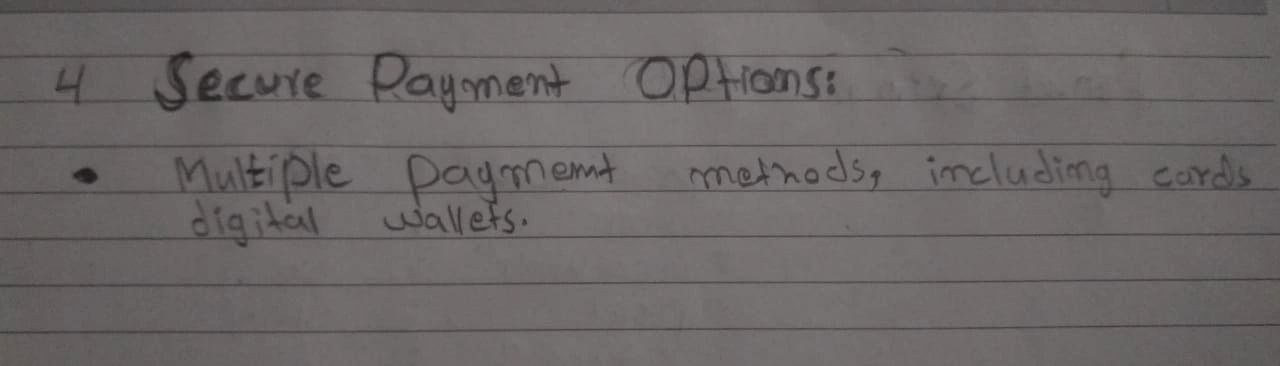 4 Secure Payment Options:
• Multiple payment methods, including cards
digital wallets.